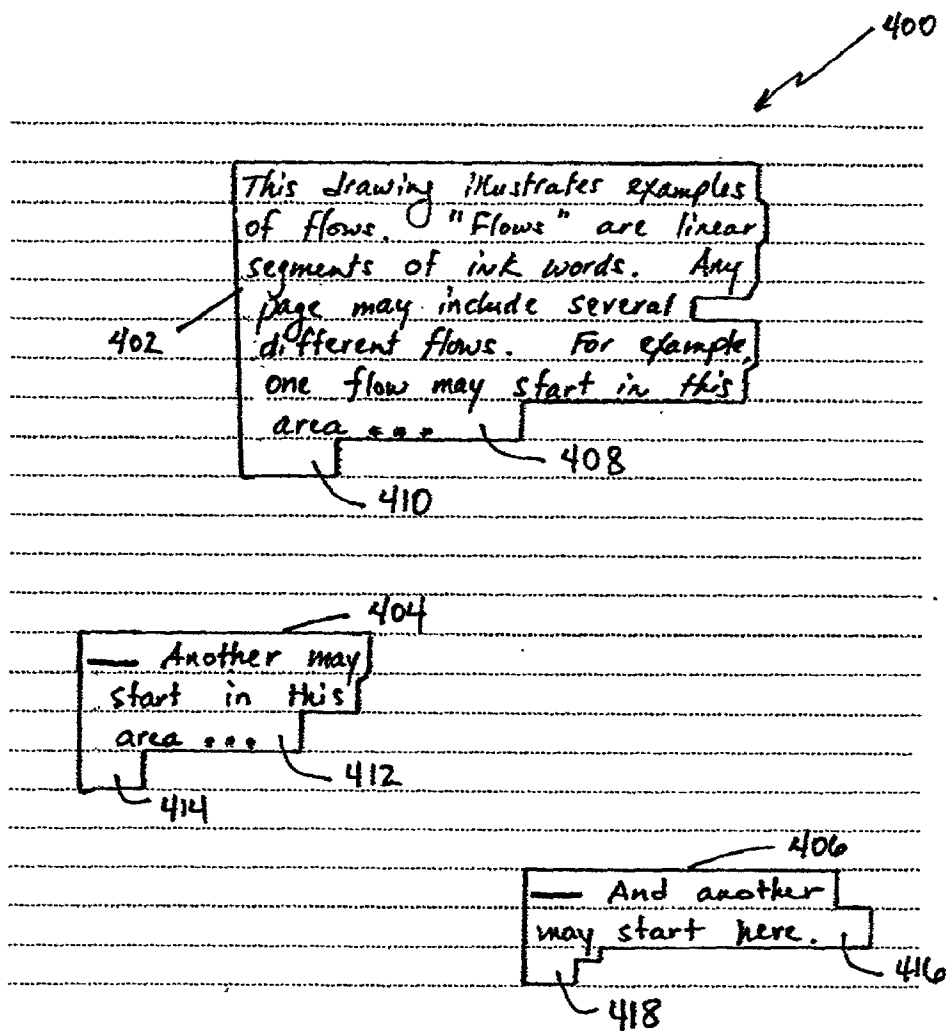 400
This drawing illustrates examples
of flows. "Flows" are linear
segments of ink words. Any
page may include several
402
different flows. For example,
one flow may start in this
area ...
408
410
404
— Another may
start in this
area ...
412
414
406
— And another
may start here.
416
418